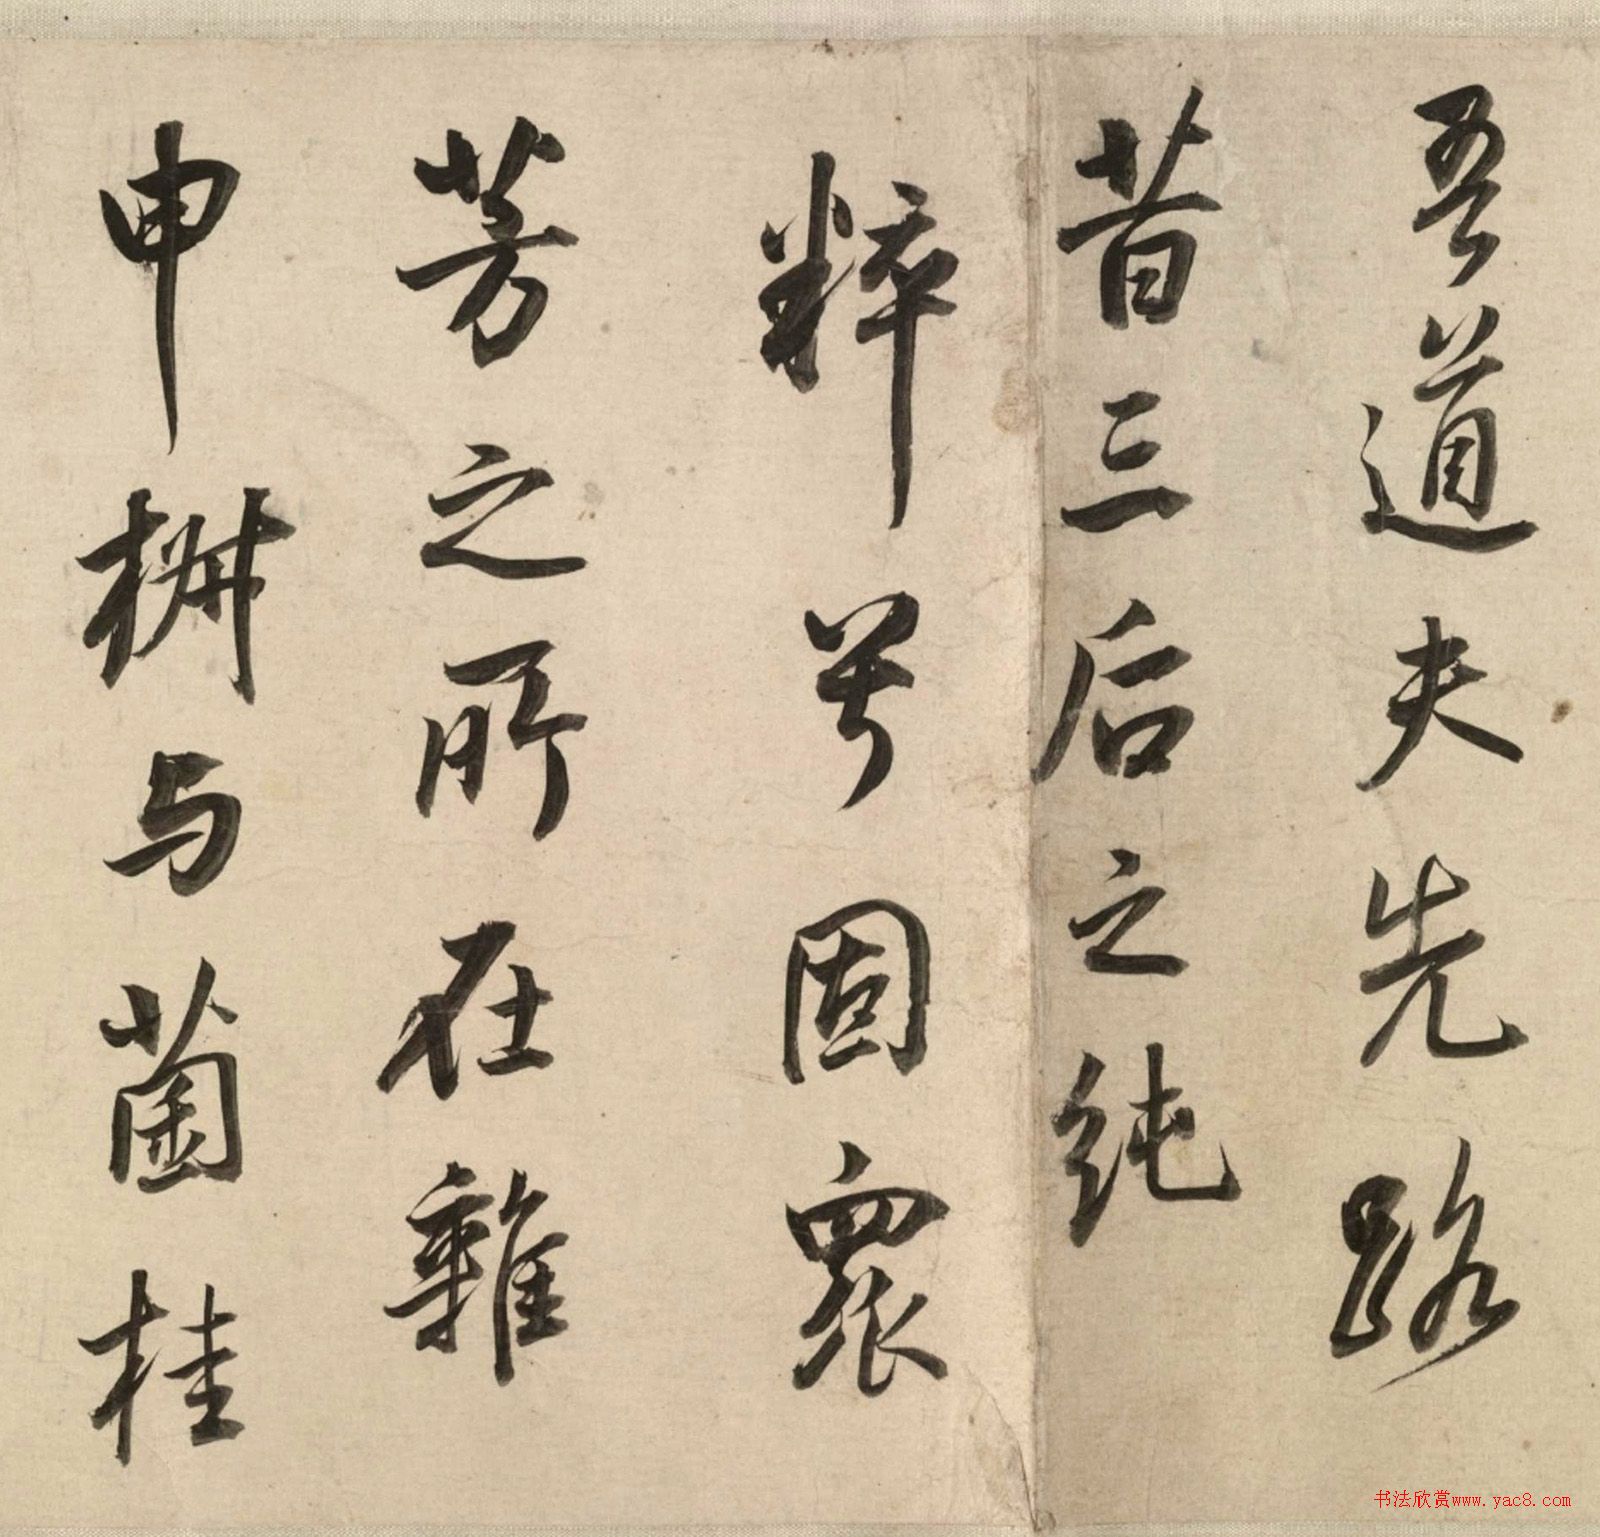 吾道夫先路
昔三后之纯
粹兮固眾
芳之所在雜
申椒与菌桂
书法欣赏www.yac8.com